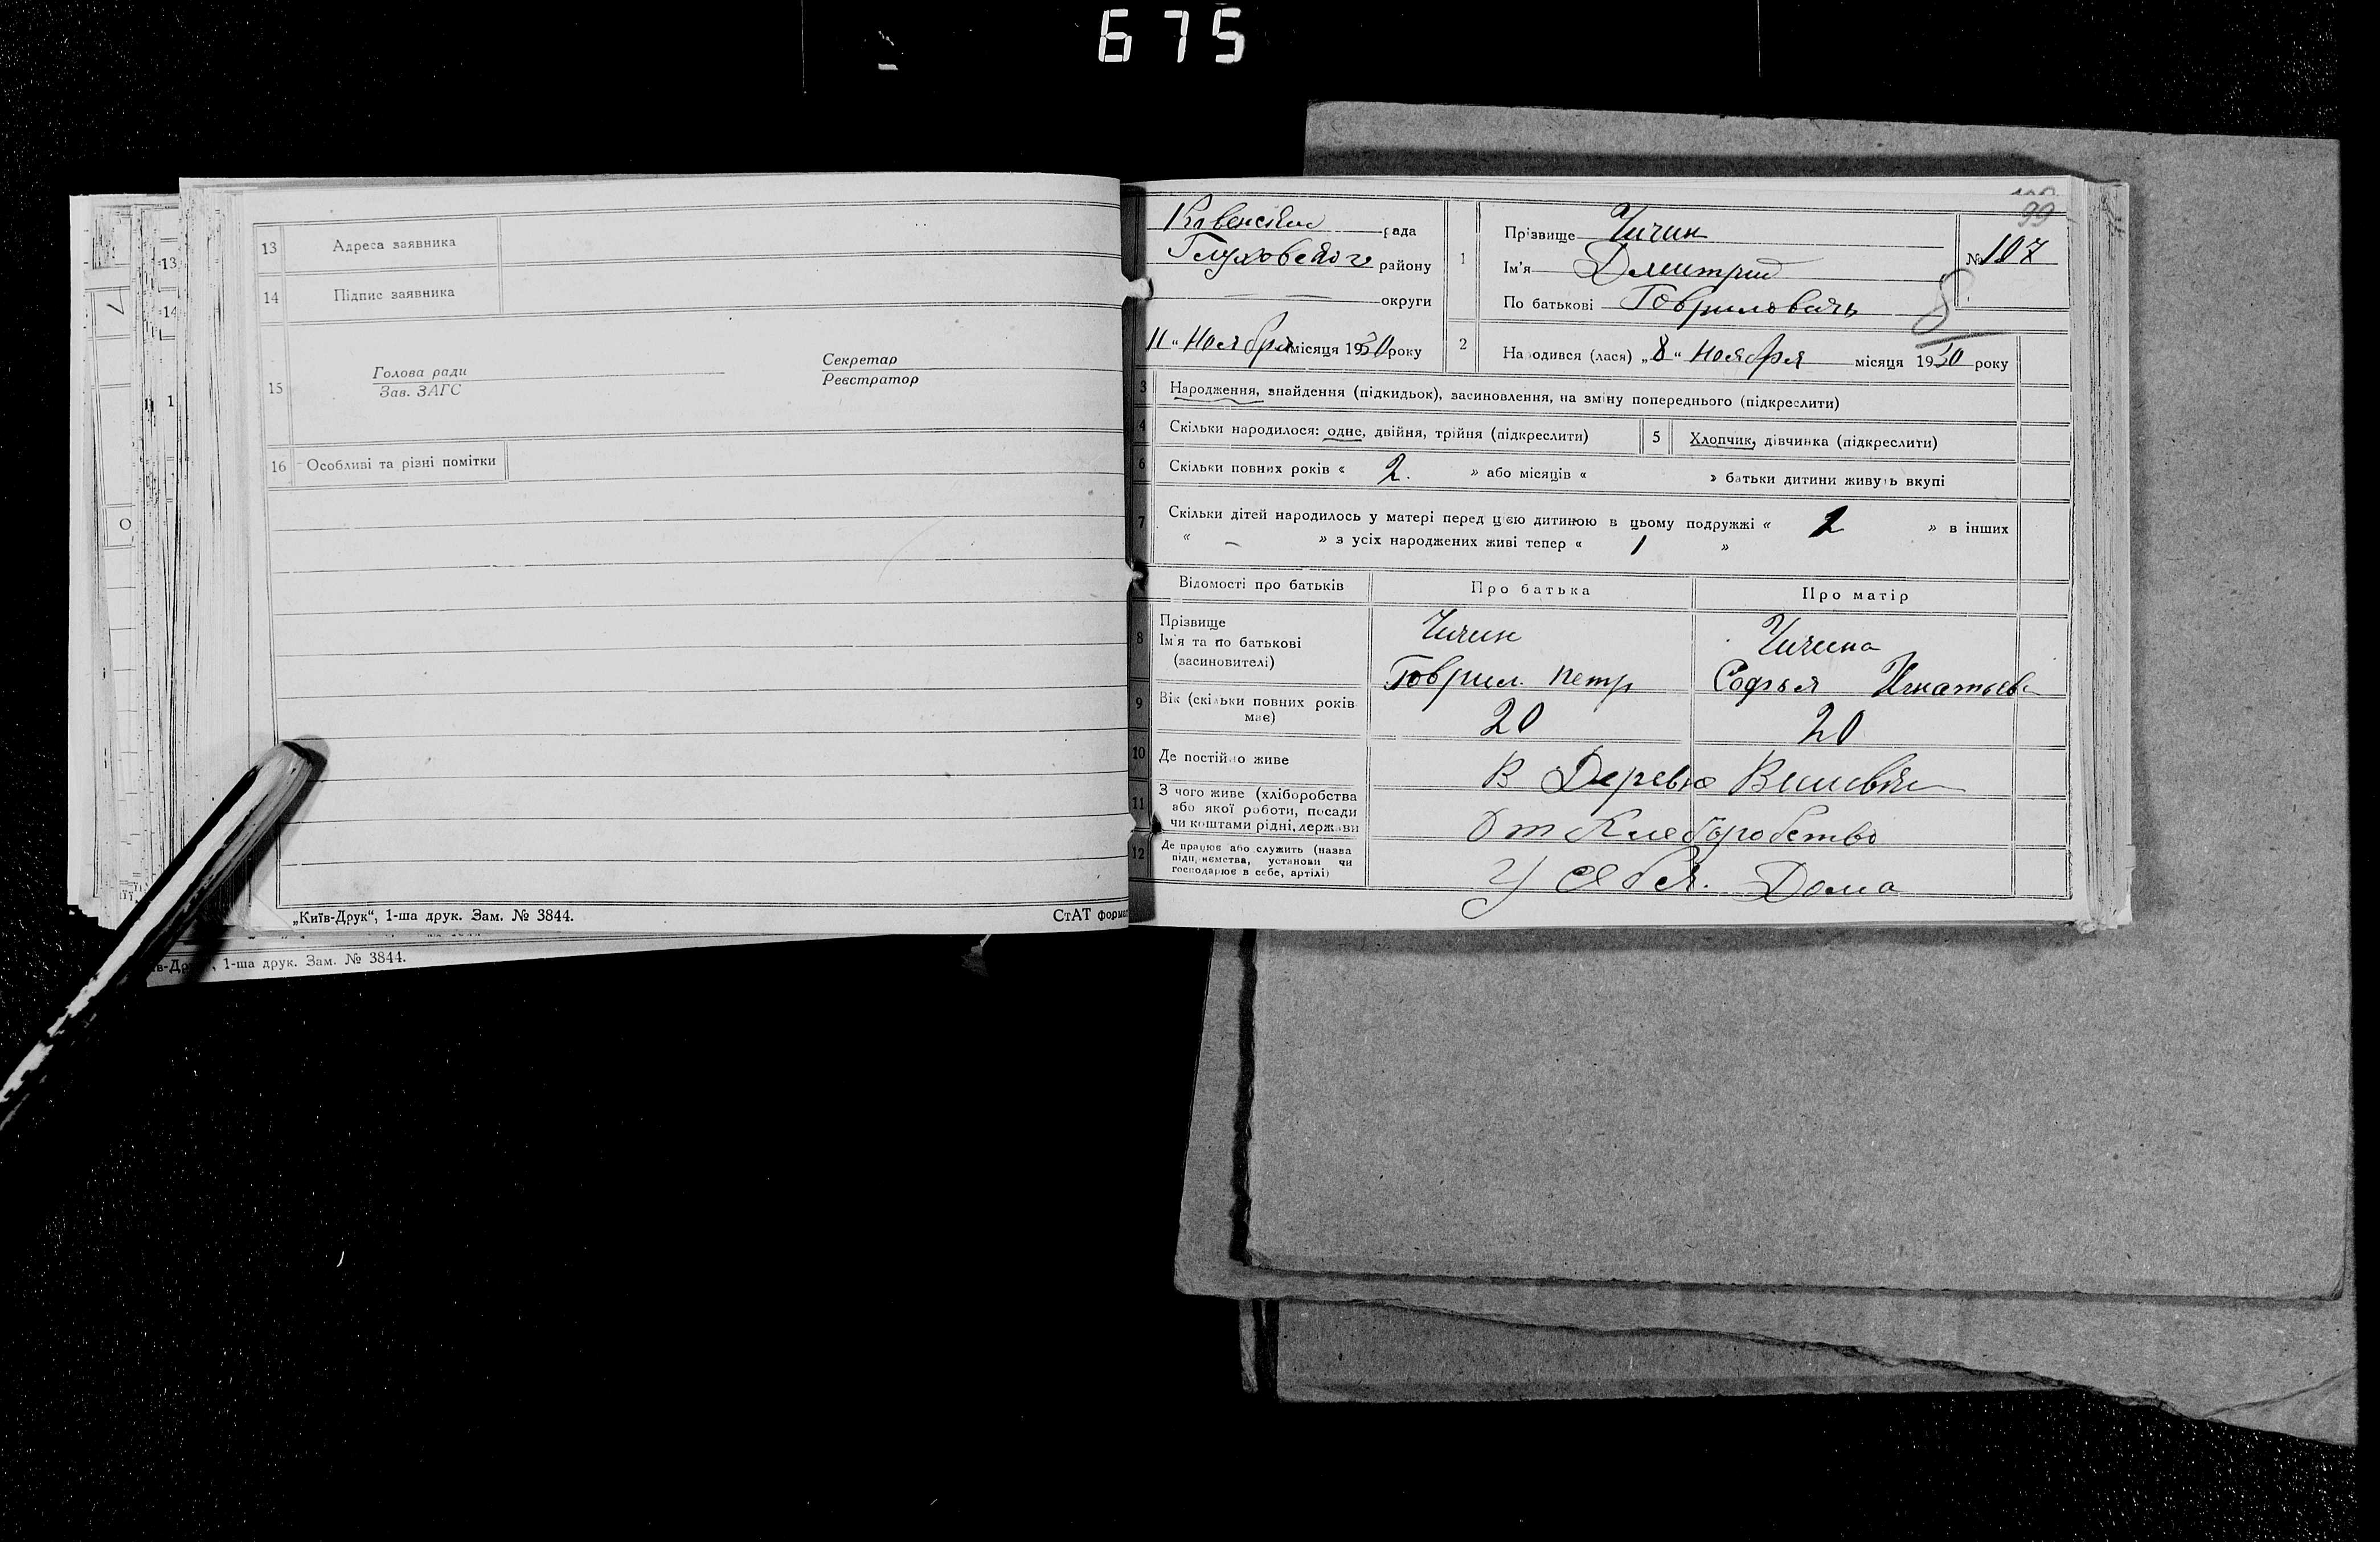 675
13 Адреса заявника
14 Підпис заявника
15 Голова ради
Зав. ЗАГС
Секретар
Реєстратор
16 Особливі та різні помітки
„Київ-Друк“, 1-ша друк. Зам. № 3844.
СтАТ формат
1-ша друк. Зам. № 3844.
99
рада
Глуховского району
округи
11 “ Ноября місяця 1930 року
1 Прізвище Чичин
Ім'я Дмитрий
По батькові Говриловичь
№ 107
8
2 Народився (лася) „ 8 “ Ноября місяця 1930 року
3 Народження, знайдення (підкидьок), засиновлення, на зміну попереднього (підкреслити)
4 Скільки народилося: одне, двійня, трійня (підкреслити)
5 Хлопчик, дівчинка (підкреслити)
6 Скільки повних років « 2. » або місяців « » батьки дитини живуть вкупі
7 Скільки дітей народилось у матері перед цією дитиною в цьому подружжі « 1 » в інших
« – » з усіх народжених живі тепер « 1 »
Відомості про батьків
Про батька
Про матір
8 Прізвище
Ім'я та по батькові
(засиновителі)
Чичин
Говрил Петр
Чичина
Софья Игнатьев
9 Вік (скільки повних років
має)
20
20
10 Де постійно живе
В Деревне
11 З чого живе (хліборобства
або якої роботи, посади
чи коштами рідні, держави
От Хлеборобство
12 Де працює або служить (назва
підприємства, установи чи
господарює в себе, артілі)
У себя. Дома